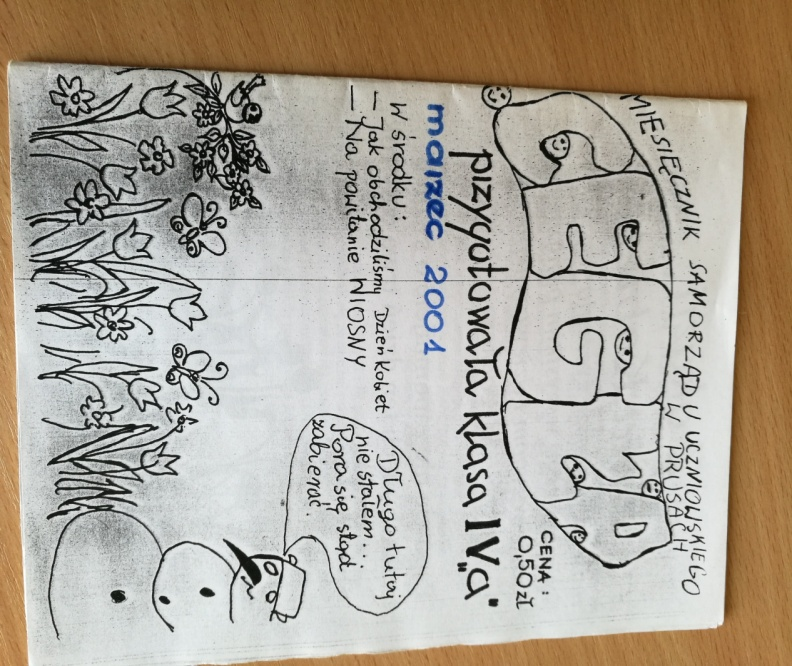 MIESIĘCZNIK SAMORZĄDU UCZNIOWSKIEGO
W PRUSACH
CENA:
0,50zł
przygotowała klasa IV„a"
marzec 2001
W środku:
– Jak obchodziliśmy Dzień Kobiet
– Na powitanie WIOSNY
Długo tutaj
nie stałem...
Pora się stąd
zabierać.